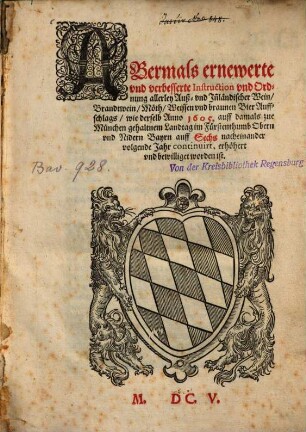 ABermals ernewerte
vnd verbesserte Instruction vnd Ord-
nung allerley Auß- vnd Jnländischer Wein/
Brandtwein/ Möth/ Weissen vnd braunen Bier Auff-
schlags/ wie derselb Anno 1605. auff damals zue
München gehaltnem Landtag im Fürstenthumb Obern
vnd Nidern Bayrn auff Sechs nacheinander
volgende Jahr continuirt, erhöhert
vnd bewilliget worden ist.
Bav. 928.
Von der Kreisbibliothek Regensburg
M. DC V.